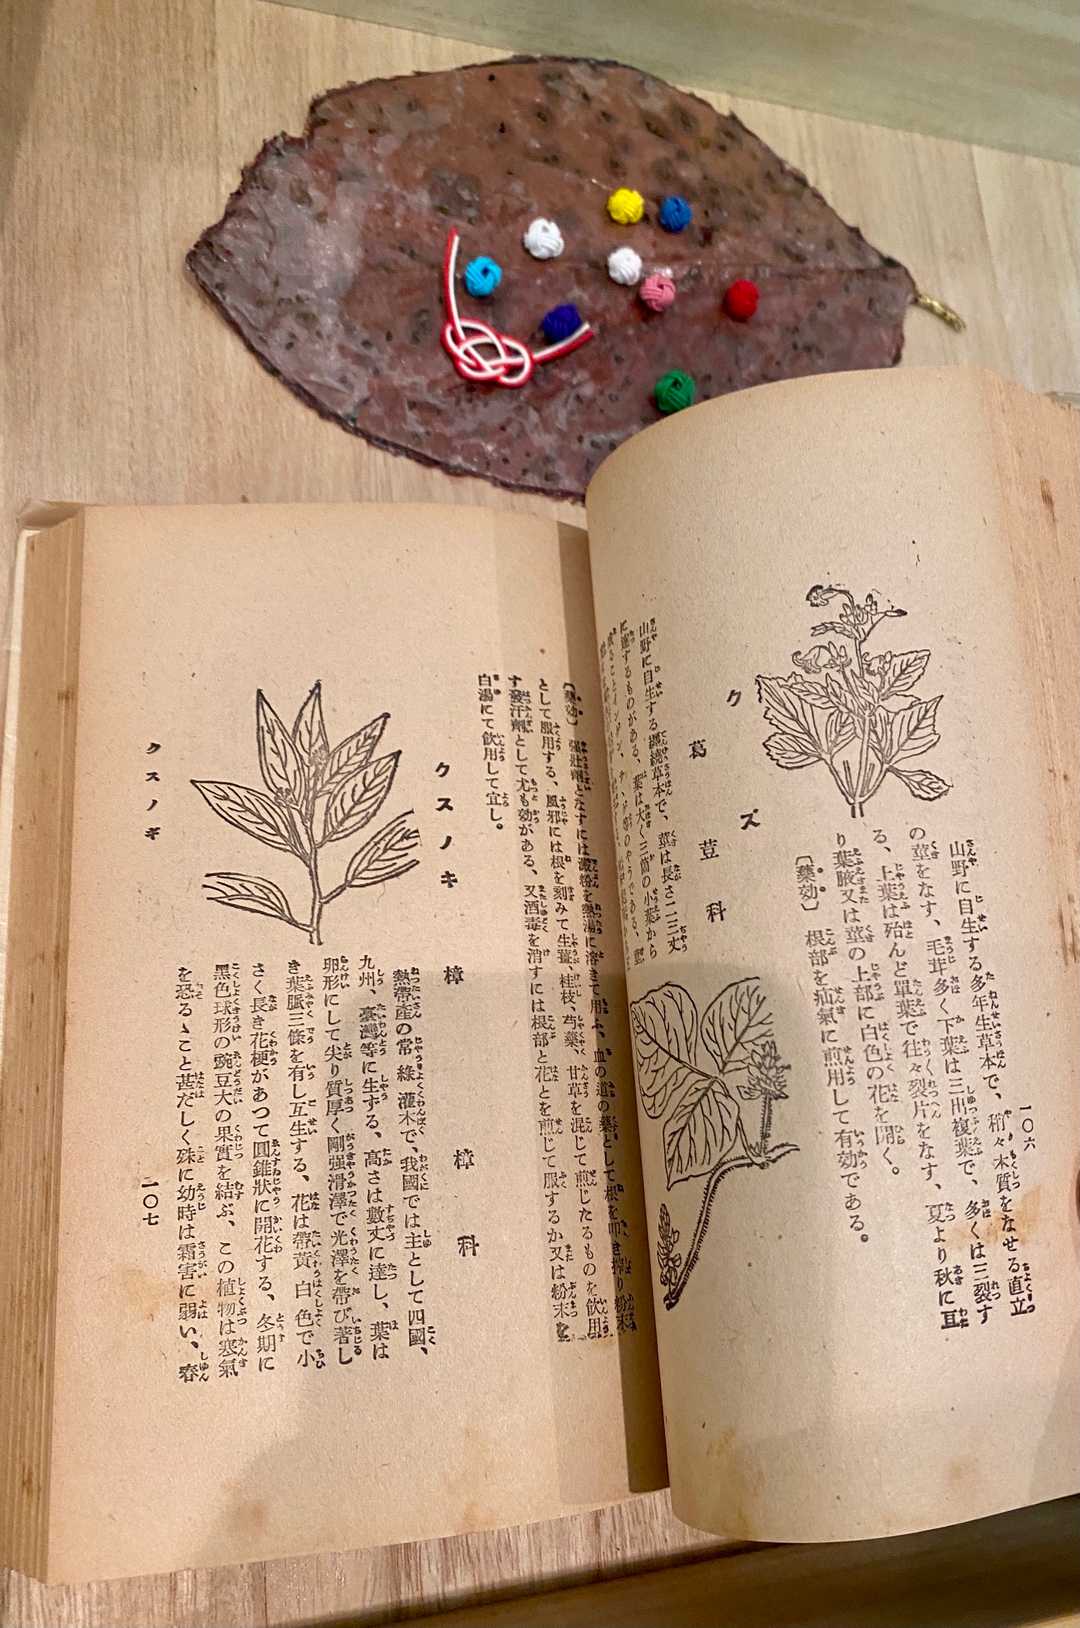 一〇六
山野に自生する多年生草本で、稍々木質をなせる直立
の莖をなす、毛茸多く下葉は三出複葉で、多くは三裂す
る、上葉は殆んど單葉で往々裂片をなす、夏より秋に亘
り葉腋又は莖の上部に白色の花を開く。
〔藥効〕 根部を疝氣に煎用して有効である。
クズ
葛 荳科
山野に自生する纏繞草本で、莖は長さ二三丈
に達するものがある、葉は大く三箇の小葉から
〔藥効〕 强壯劑となすには澱粉を熱湯に溶きて用ふ、血の道の藥として根を叩き搾り粉末
として服用する、風邪には根を刻みて生薑、桂枝、芍藥、甘草を混じて煎じたるものを飲用
す發汗劑として尤も効がある、又酒毒を消すには根部と花とを煎じて服するか又は粉末を
白湯にて飲用して宜し。
クスノキ
樟 樟科
熱帶産の常綠灌木で、我國では主として四國、
九州、臺灣等に生する、高さは數丈に達し、葉は
卵形にして尖り質厚く剛强滑澤で光澤を帶び著し
き葉脈三條を有し互生する、花は帶黃白色で小
さく長き花梗があつて圓錐狀に開花する、冬期に
黑色球形の豌豆大の果實を結ぶ、この植物は寒氣
を恐るゝこと甚だしく殊に幼時は霜害に弱い、春
クスノキ
一〇七